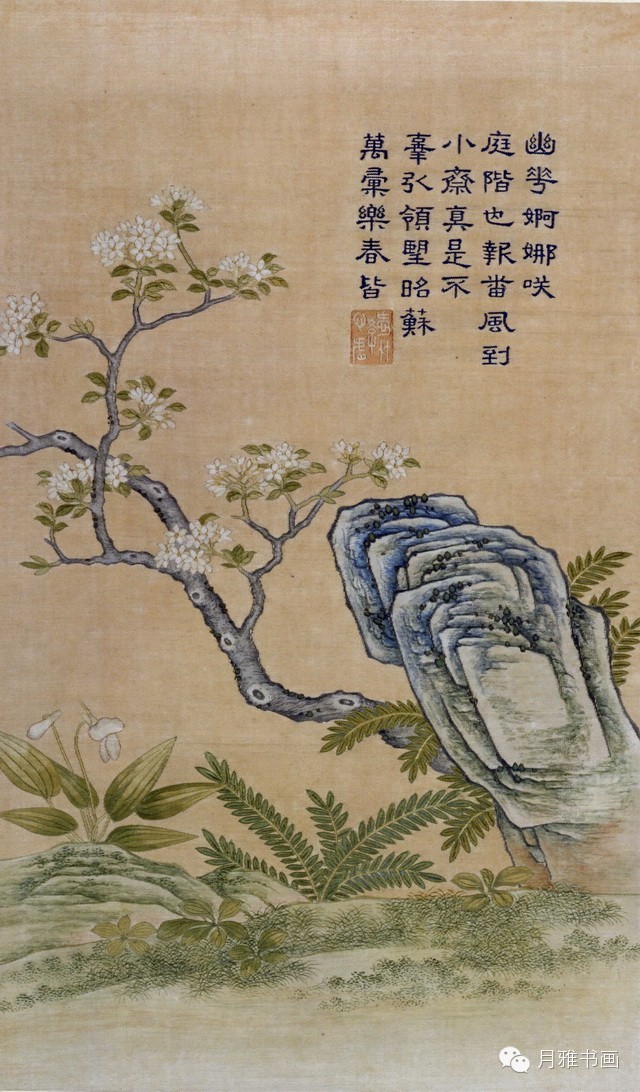 幽華婀娜咲
庭階也報番風到
小齋真是不
辜引領朢昭蘇
萬彙樂春皆
月雅书画